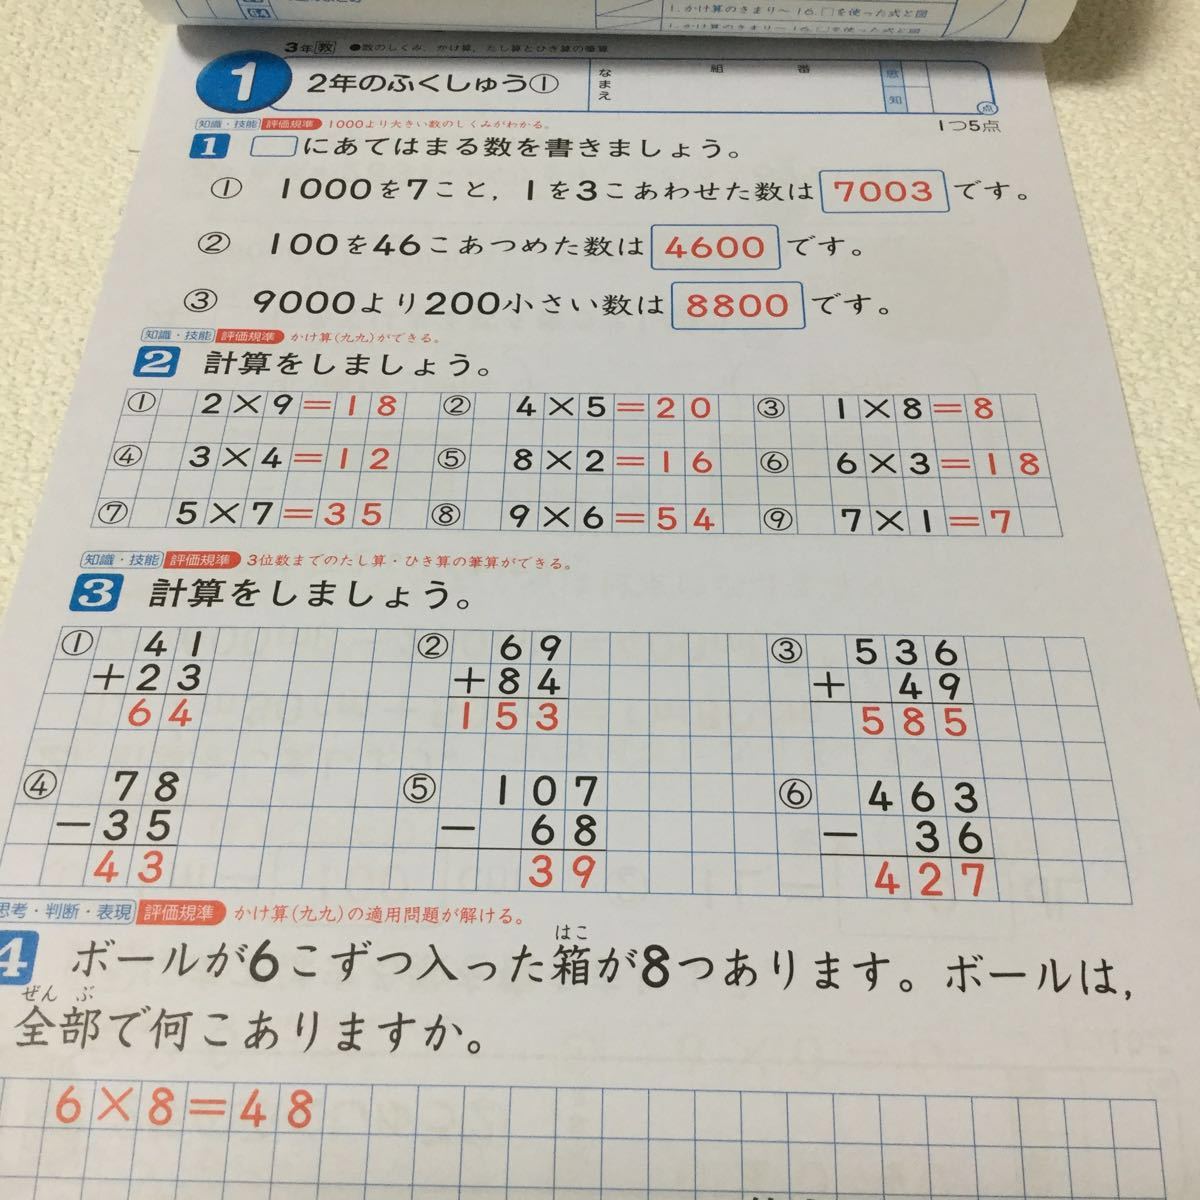 64
1.かけ算のきまり〜16.□を使った式と図
1.かけ算のきまり〜16.□を使った式と図
3年 教 ●数のしくみ,かけ算,たし算とひき算の筆算
1 2年のふくしゅう① なまえ 組 番 思 知 点
知識・技能 評価規準 1000より大きい数のしくみがわかる。 1つ5点
1 □にあてはまる数を書きましょう。
① 1000を7こと,1を3こあわせた数は 7003 です。
② 100を46こあつめた数は 4600 です。
③ 9000より200小さい数は 8800 です。
知識・技能 評価規準 かけ算(九九)ができる。
2 計算をしましょう。
① 2×9=18 ② 4×5=20 ③ 1×8=8
④ 3×4=12 ⑤ 8×2=16 ⑥ 6×3=18
⑦ 5×7=35 ⑧ 9×6=54 ⑨ 7×1=7
知識・技能 評価規準 3位数までのたし算・ひき算の筆算ができる。
3 計算をしましょう。
① 41 ② 69 ③ 536
+23 +84 + 49
64 153 585
④ 78 ⑤ 107 ⑥ 463
−35 − 68 − 36
43 39 427
思考・判断・表現 評価規準 かけ算(九九)の適用問題が解ける。
はこ
4 ボールが6こずつ入った箱が8つあります。ボールは,
ぜんぶ
全部で何こありますか。
6×8=48